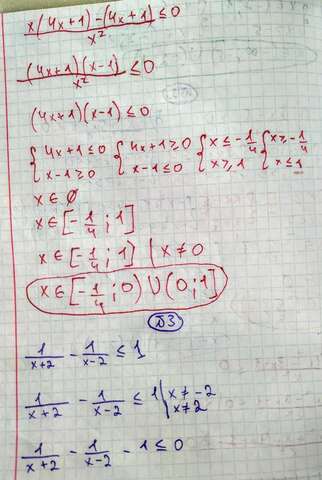 x(4x+1)-(4x+1)/x² ≤ 0
(4x+1)(x-1)/x² ≤ 0
(4x+1)(x-1) ≤ 0
{4x+1 ≤ 0 {4x+1 ≥ 0 {x ≤ -1/4 {x ≥ -1/4
x-1 ≥ 0 x-1 ≤ 0 x ≥ 1 x ≤ 1
x ∈ ∅
x ∈ [-1/4 ; 1]
x ∈ [-1/4 ; 1] | x ≠ 0
x ∈ [-1/4 ; 0) ∪ (0 ; 1]
1/(x+2) - 1/(x-2) ≤ 1
1/(x+2) - 1/(x-2) ≤ 1 | x ≠ -2
x ≠ 2
1/(x+2) - 1/(x-2) - 1 ≤ 0